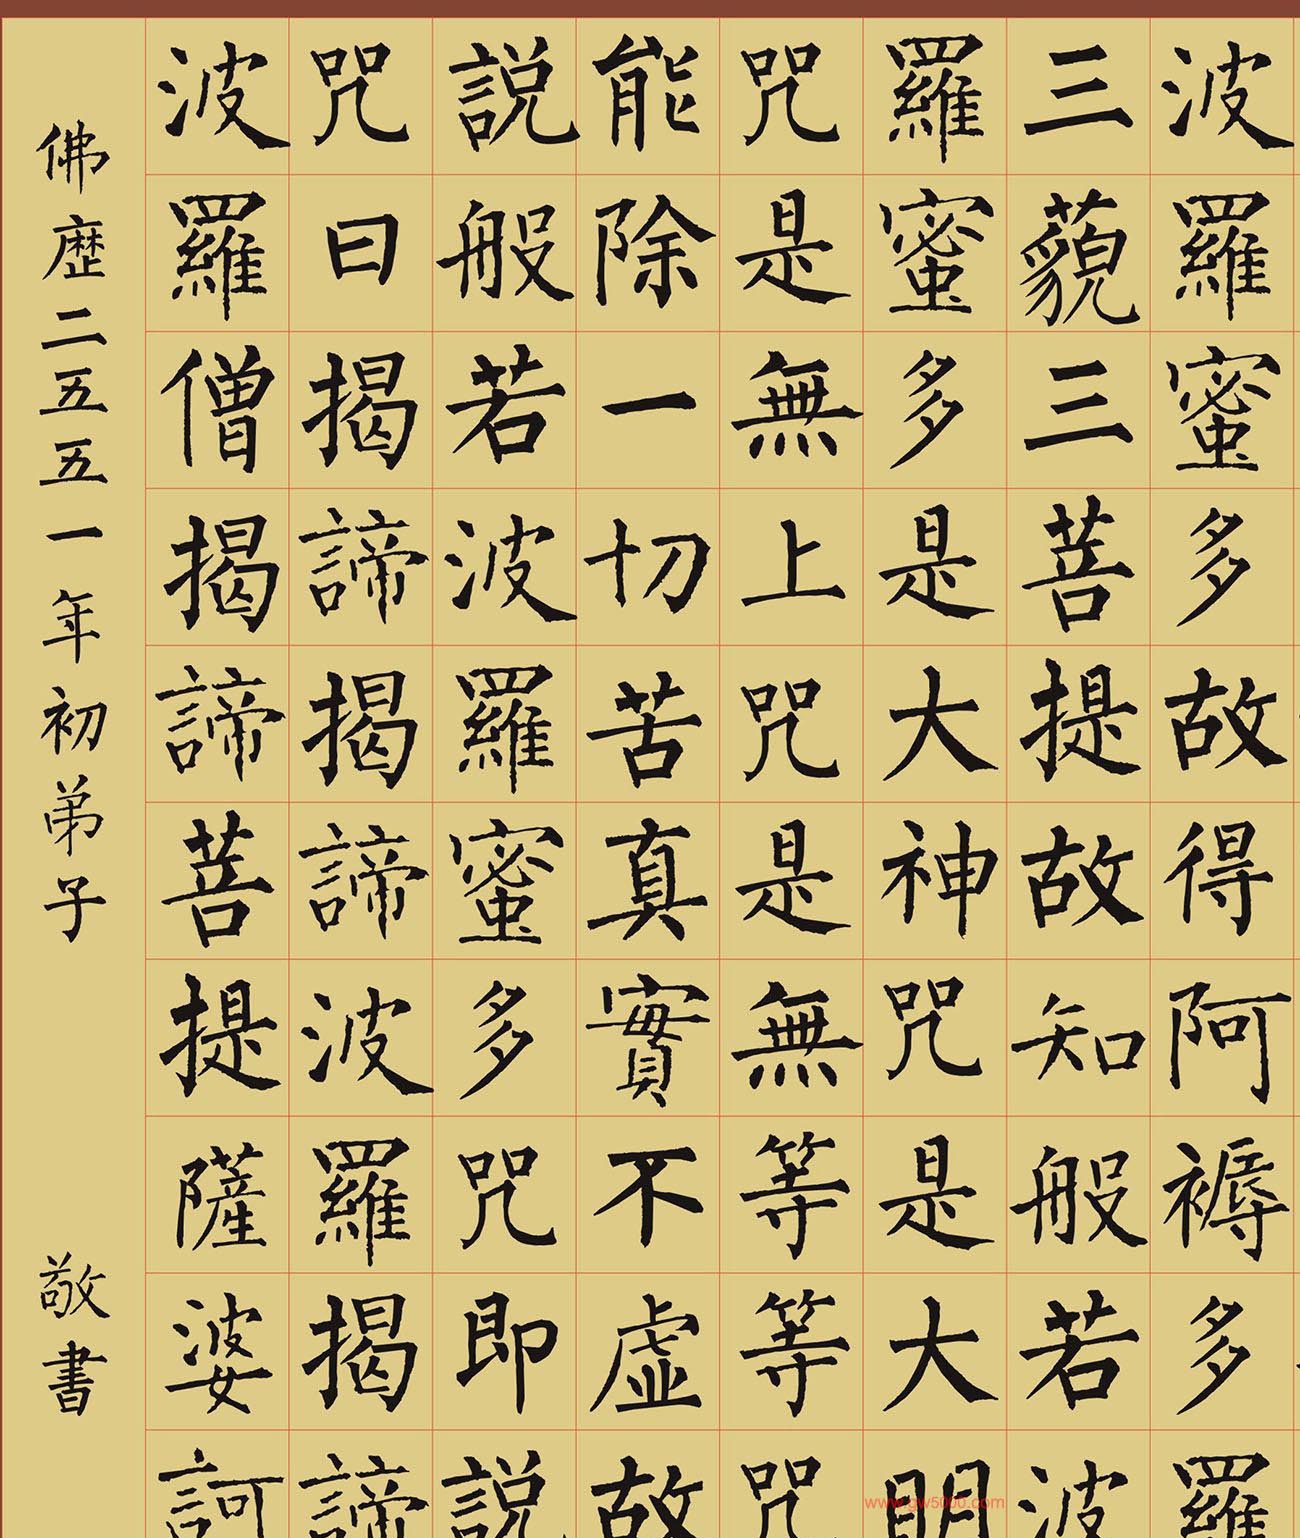 波羅蜜多故得阿褥多羅
三藐三菩提故知般若波
羅蜜多是大神咒是大明
咒是無上咒是無等等咒
能除一切苦真實不虛故
說般若波羅蜜多咒即說
咒曰揭諦揭諦波羅揭諦
波羅僧揭諦菩提薩婆訶
佛歷二五五一年初弟子 敬書
www.gw5000.com